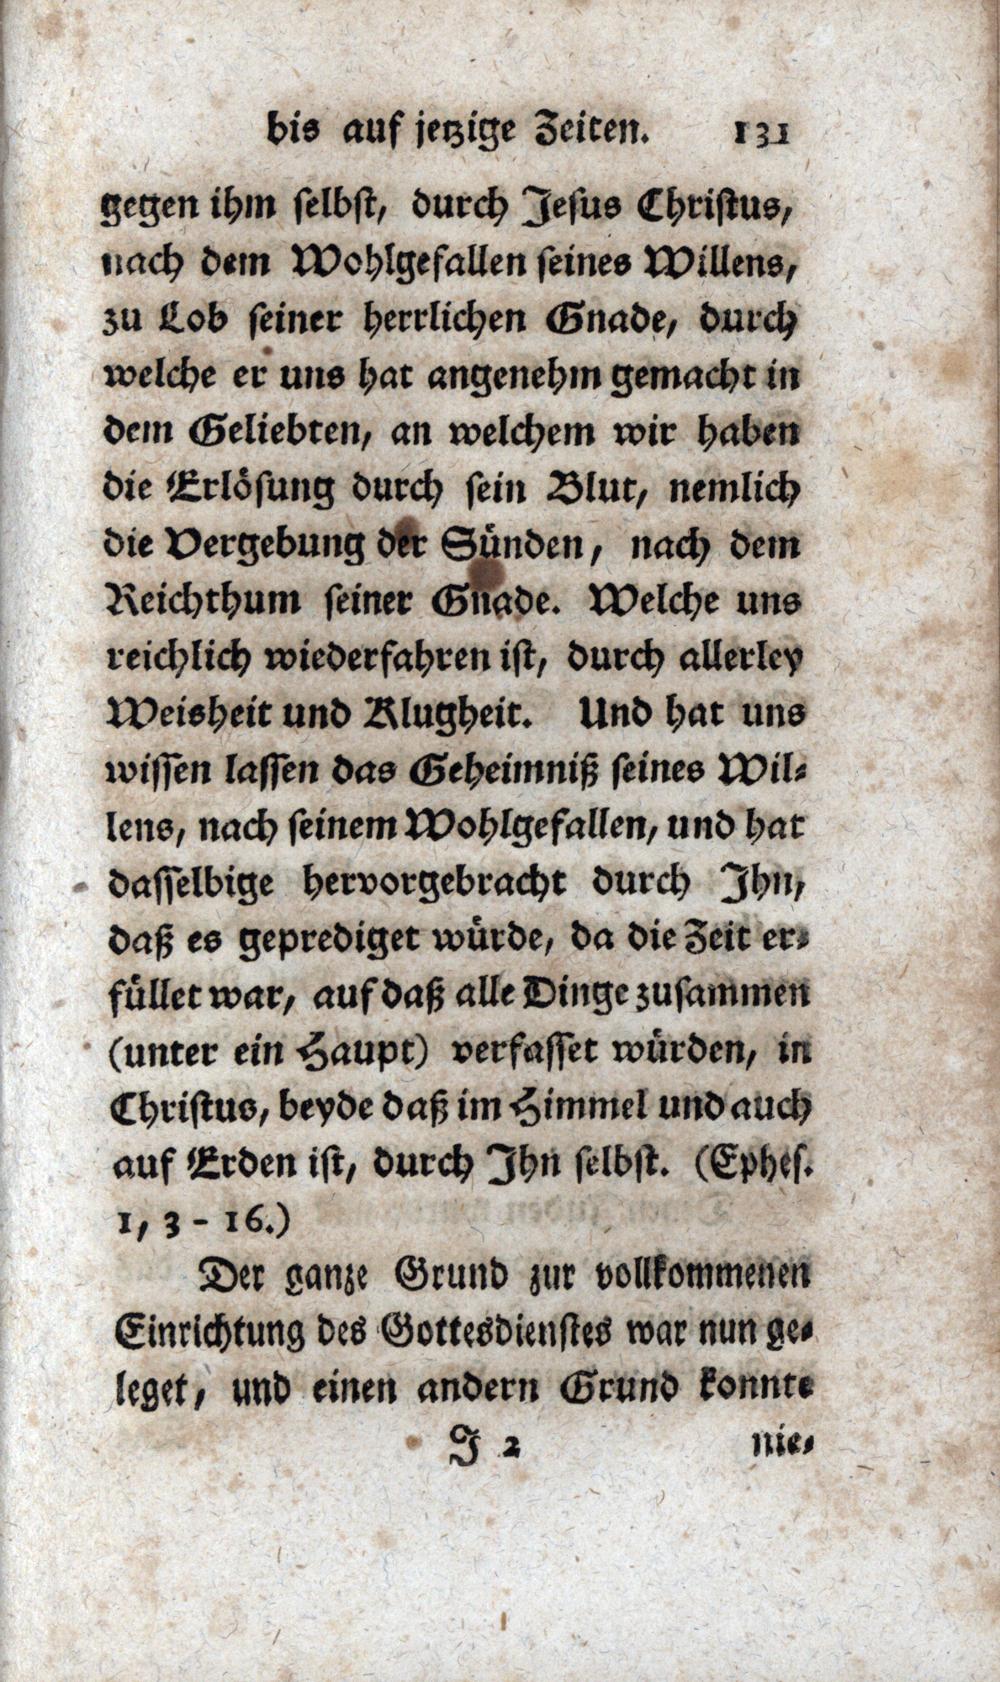 bis auf jetzige Zeiten. 131
gegen ihm selbst, durch Jesus Christus,
nach dem Wohlgefallen seines Willens,
zu Lob seiner herrlichen Gnade, durch
welche er uns hat angenehm gemacht in
dem Geliebten, an welchem wir haben
die Erlösung durch sein Blut, nemlich
die Vergebung der Sünden, nach dem
Reichthum seiner Gnade. Welche uns
reichlich wiederfahren ist, durch allerley
Weisheit und Klugheit. Und hat uns
wissen lassen das Geheimniß seines Wil-
lens, nach seinem Wohlgefallen, und hat
dasselbige hervorgebracht durch Ihn,
daß es geprediget würde, da die Zeit er-
füllet war, auf daß alle Dinge zusammen
(unter ein Haupt) verfasset würden, in
Christus, beyde daß im Himmel und auch
auf Erden ist, durch Ihn selbst. (Ephes.
1, 3 - 16.)
Der ganze Grund zur vollkommenen
Einrichtung des Gottesdienstes war nun ge-
leget, und einen andern Grund konnte
J 2 nie-